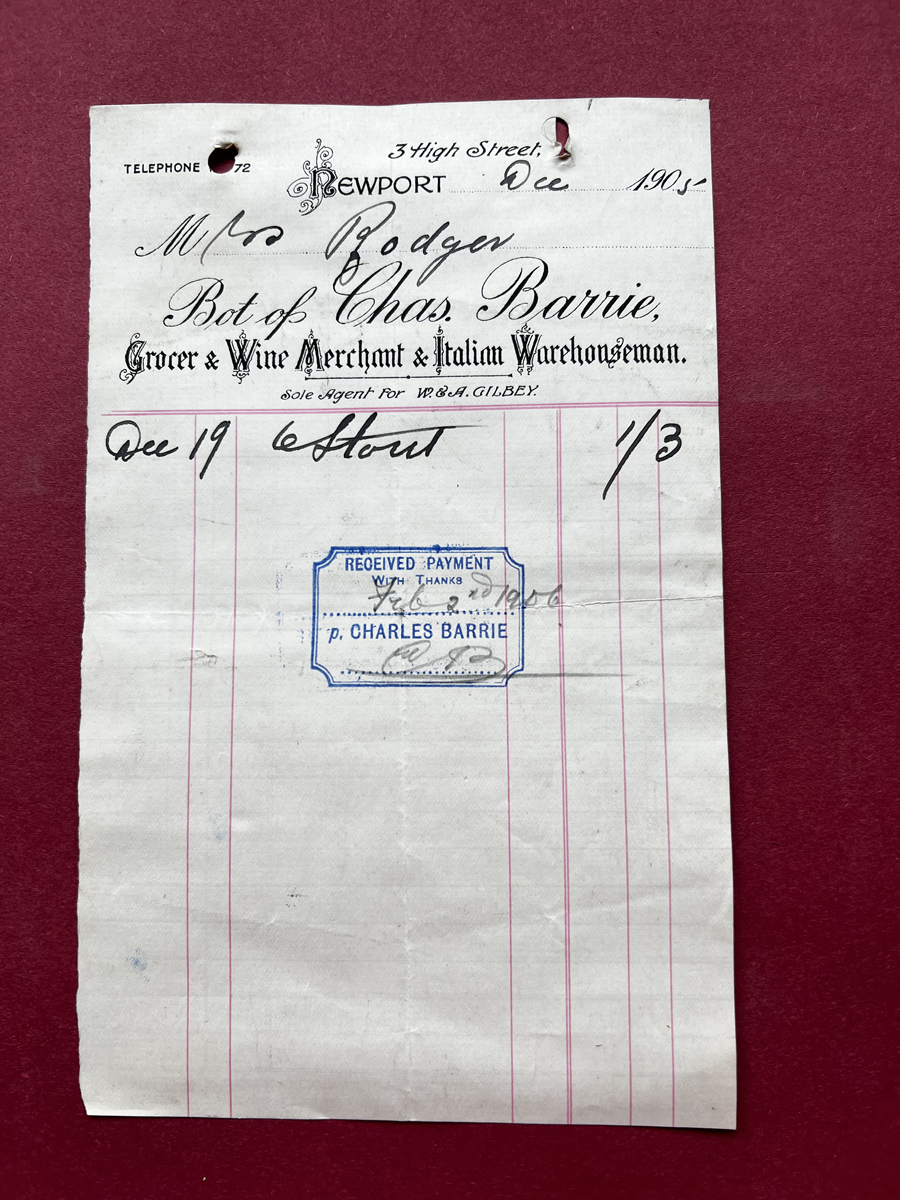 TELEPHONE 72
3 High Street,
NEWPORT Dec 1905
Mrs Rodger
Bot of Chas. Barrie,
Grocer & Wine Merchant & Italian Warehouseman.
Sole Agent For W. & A. GILBEY.
Dec 19 6 Stout 1/3
RECEIVED PAYMENT
WITH THANKS
Feb 2nd 1906
p. CHARLES BARRIE